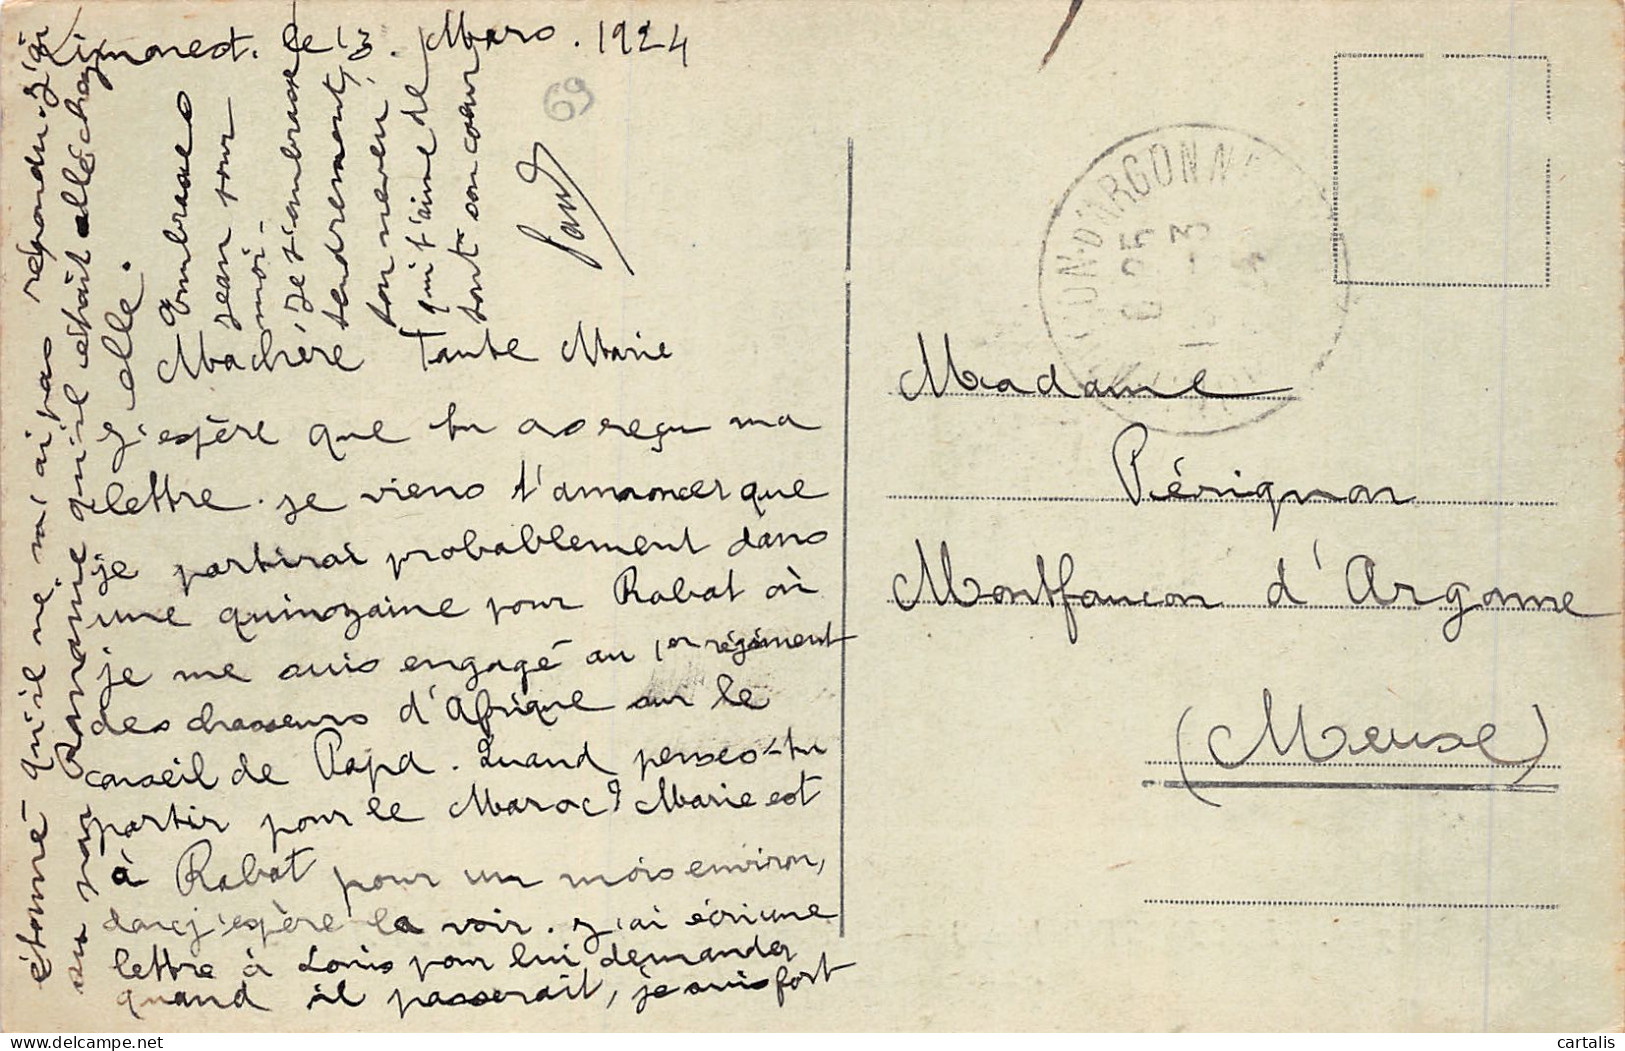 Limonest. le 13. Mars. 1924
69
Ma chère Tante Marie
J'espère que tu as reçu ma
lettre. je viens t'annoncer que
je partirai probablement dans
une quinzaine pour Rabat où
je me suis engagé au 1er régiment
des chasseurs d'Afrique sur le
conseil de Papa. Quand penses-tu
partir pour le Maroc? Marie est
à Rabat pour un mois environ,
donc j'espère la voir. J'ai écri une
lettre à Louis pour lui demander
quand il passerait, je suis fort
étonné qu'il ne m'ai pas répondu. J'ai
su par Romanie qu'il était allé chez
elle.
Embrasses
Jean pour
moi.
Je t'embrasse
tendrement,
ton neveu
qui t'aime de
tout son coeur
Paul
D'ARGONNE
Madame
Pérignon
Montfaucon d'Argonne
(Meuse)
cartalis
delcampe.net